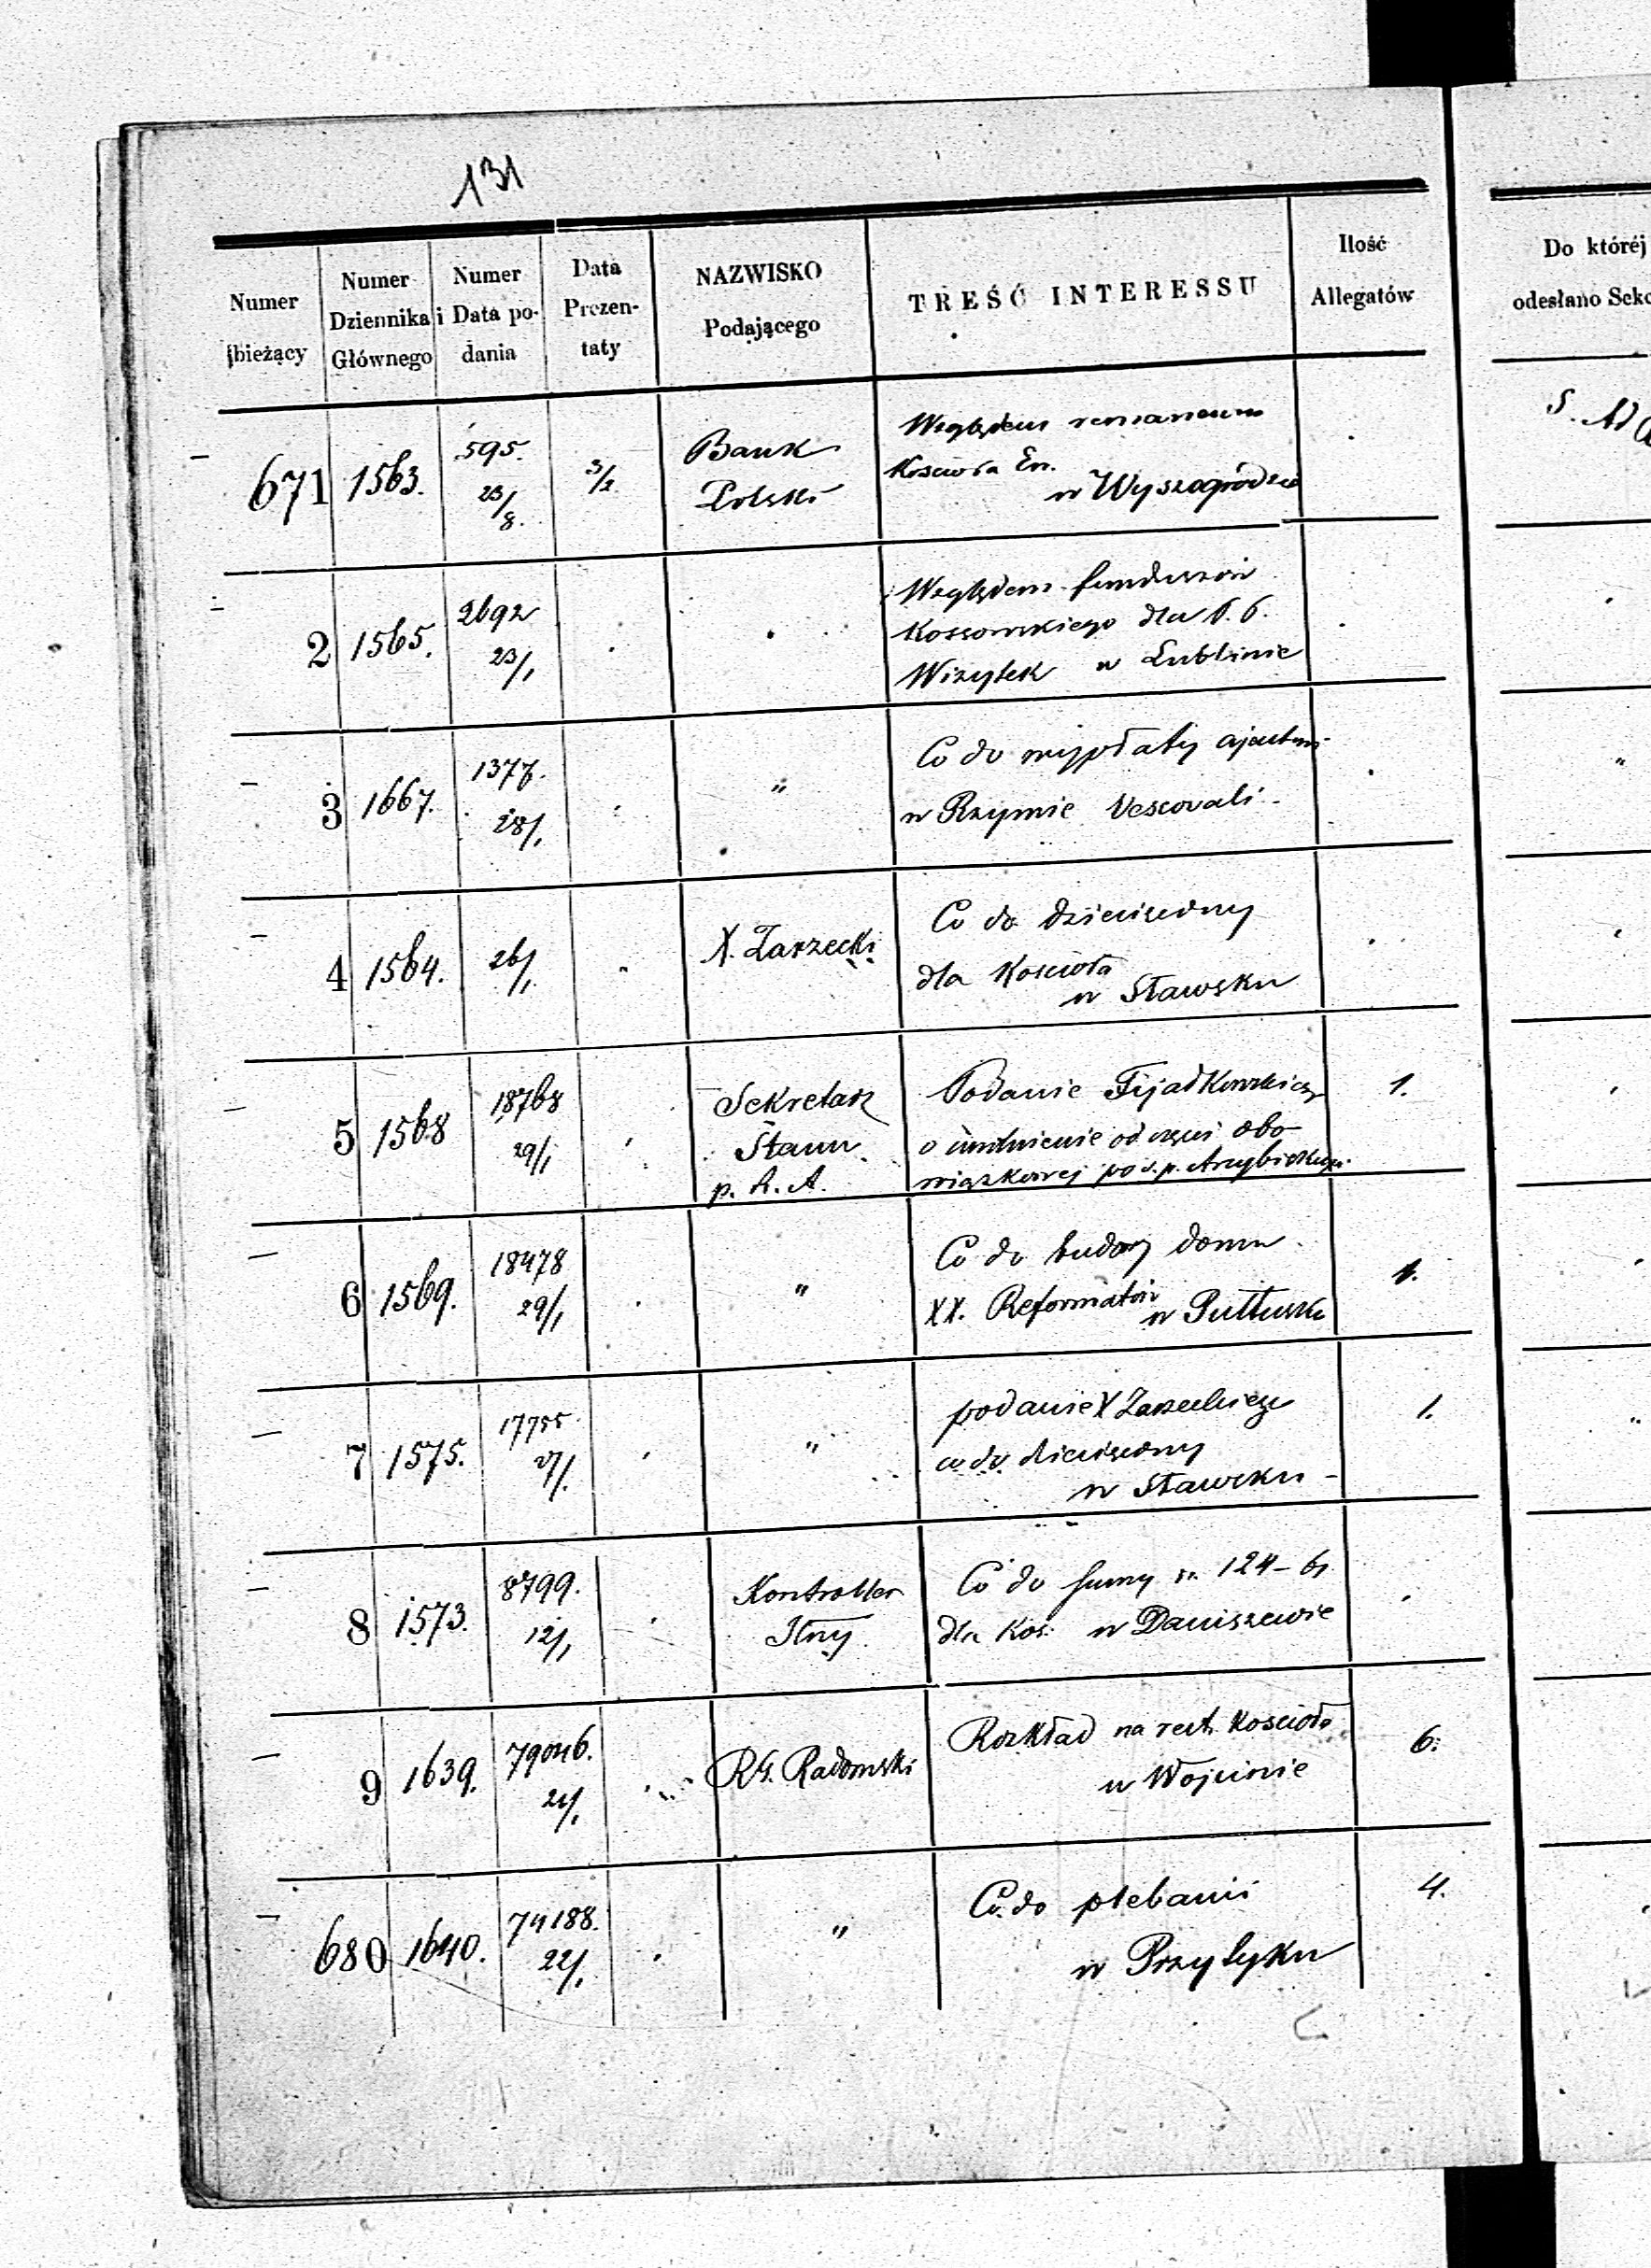 131
Numer
bieżący
Numer
Dziennika
Głównego
Numer
i Data po-
dania
Data
Prezen-
taty
NAZWISKO
Podającego
TREŚĆ INTERESSU
Ilość
Allegatów
Do któréj
odesłano Sekc
671 1563. 595. 23/8. 3/2
Bank
Polski
Względem remanentu
Kościoła En.
w Wyszogrodzie
2 1565. 2692 23/1
Względem funduszów
Kossowskiego dla P. P.
Wizytek w Lublinie
3 1667. 1377. 28/1 "
Co do wypłaty ajentow.
w Rzymie Vescovali
4 1564. 26/1 "
X. Zarzecki
Co do dziesięciny
dla Kościoła
w Sławsku
5 1568 18768 29/1
Sekretarz
Stanu
p. A. A.
Podanie Fijałkowskiego
o uwolnienie od części obo-
wiązkowej po ś. p. Arcybiskupie
1.
6 1569. 18478 29/1 "
Co do budowy domu
XX. Reformatów
w Pułtusku
1.
7 1575. 17755 "
podanie X Zarzeckiego
co do dziesięciny
w Sławsku -
1.
8 1573. 8799. 12/1
Kontroller
Jlny
Co do sumy rs. 124 - 61
dla Koś. w Daniszewie
9 1639. 79046. 21/1
RG. Radomski
Rozkład na rest. Kościoła
w Wojcinie
6.
680 1640. 74188. 22/1 "
Co do plebanii
w Przytyku
4.